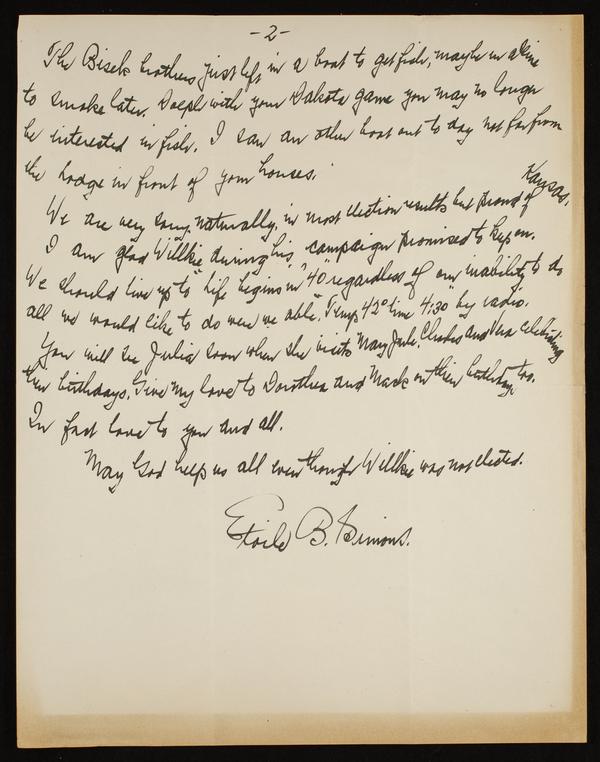 -2-
The Bisek brothers just left in a boat to get fish, maybe in a line
to smoke later. with your Dakota game you may no longer
be interested in fish. I saw an other boat out to day not far from
the in front of your houses.
We are very sorry, naturally, in most election results but proud of Kansas.
I am glad Willkie during his campaign promised to keep on.
We should live up to "Life begins in "40" regardless of our inability to do
all we would like to do were we able". Temp. 42° time 4:30 by radio.
You will see Julia soon when she visits May Jule. Charles and Vera celebrating
their birthdays. Give my love to Dorothea and Mack on their birthdays too.
In fact love to you and all.
May God help us all even though Willkie was not elected.
Etoile B. Simons.